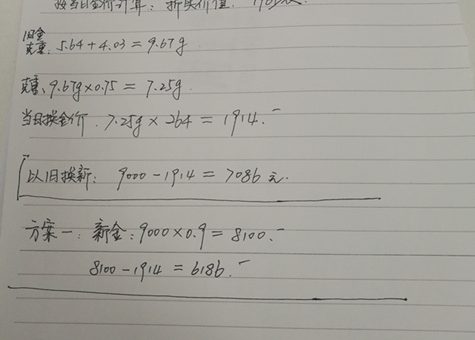 按当日金价计算: 折买价值.
旧金
克重: 5.64+4.03=9.67g
克重: 9.67g×0.75=7.25g
当日换金价. 7.25g×264=1914.-
以旧换新: 9000-1914=7086元.
方案一: 新金: 9000×0.9=8100.-
8100-1914=6186.-